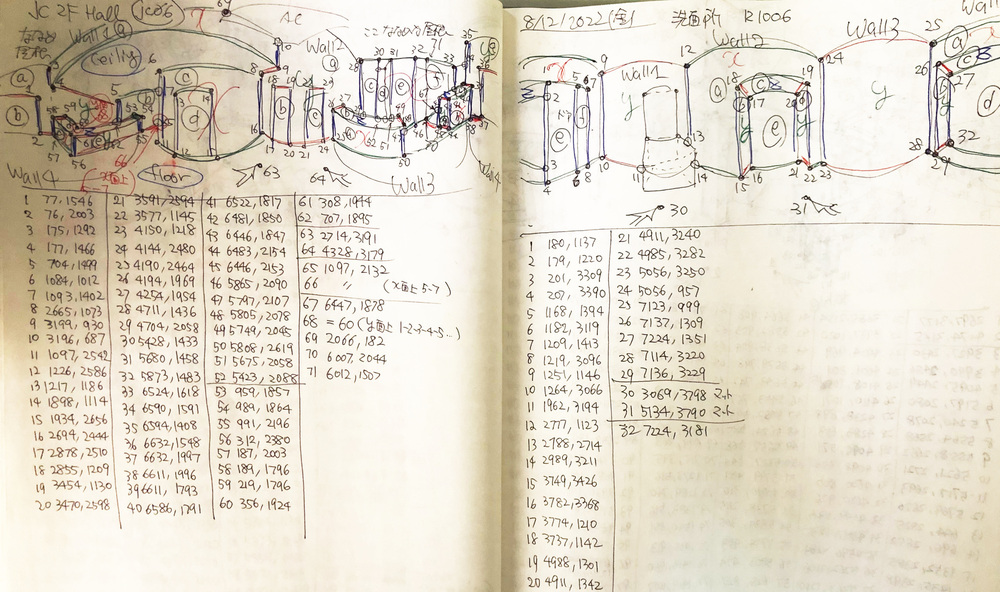 JC 2F Hall (JC06)
Wall1 a
Ceiling
AC
Wall2
Wall4
floor
63
64
Wall3
1 77,1546
2 76,2003
3 175,1292
4 177,1466
5 704,1499
6 1084,1012
7 1093,1402
8 2665,1073
9 3199,930
10 3196,687
11 1097,2542
12 1226,2586
13 1217,1186
14 1898,1114
15 1934,2656
16 2694,2444
17 2878,2510
18 2855,1209
19 3454,1130
20 3470,2598
21 3591,2594
22 3577,1145
23 4150,1218
24 4144,2480
25 4190,2464
26 4194,1969
27 4254,1954
28 4711,1436
29 4704,2058
30 5428,1433
31 5680,1458
32 5873,1483
33 6524,1618
34 6590,1591
35 6594,1408
36 6632,1548
37 6632,1997
38 6611,1996
39 6611,1793
40 6586,1791
41 6522,1817
42 6481,1850
43 6446,1847
44 6483,2154
45 6446,2153
46 5865,2090
47 5797,2107
48 5805,2078
49 5749,2045
50 5808,2619
51 5675,2058
52 5423,2088
53 959,1857
54 989,1864
55 991,2196
56 312,2380
57 187,2003
58 189,1796
59 219,1796
60 356,1924
61 308,1944
62 707,1895
63 2714,3191
64 4328,3179
65 1097,2132
66 〃 (x面上5-7)
67 6447,1878
68 = 60 (y面上1-2-3-4-5...)
69 2066,182
70 6007,2044
71 6012,1507
8/12/2022(金) 洗面所 R1006
Wall1
Wall2
Wall3
ドア
30
31
1 180,1137
2 179,1220
3 201,3309
4 207,3390
5 1168,1394
6 1182,3119
7 1209,1413
8 1219,3096
9 1251,1146
10 1264,3066
11 1962,3194
12 2777,1123
13 2788,2714
14 2989,3211
15 3749,3426
16 3782,3368
17 3774,1210
18 3737,1142
19 4988,1301
20 4911,1342
21 4911,3240
22 4985,3282
23 5056,3250
24 5056,957
25 7123,999
26 7137,1309
27 7224,1351
28 7114,3220
29 7136,3229
30 3069,3798 マット
31 5134,3790 マット
32 7224,3181